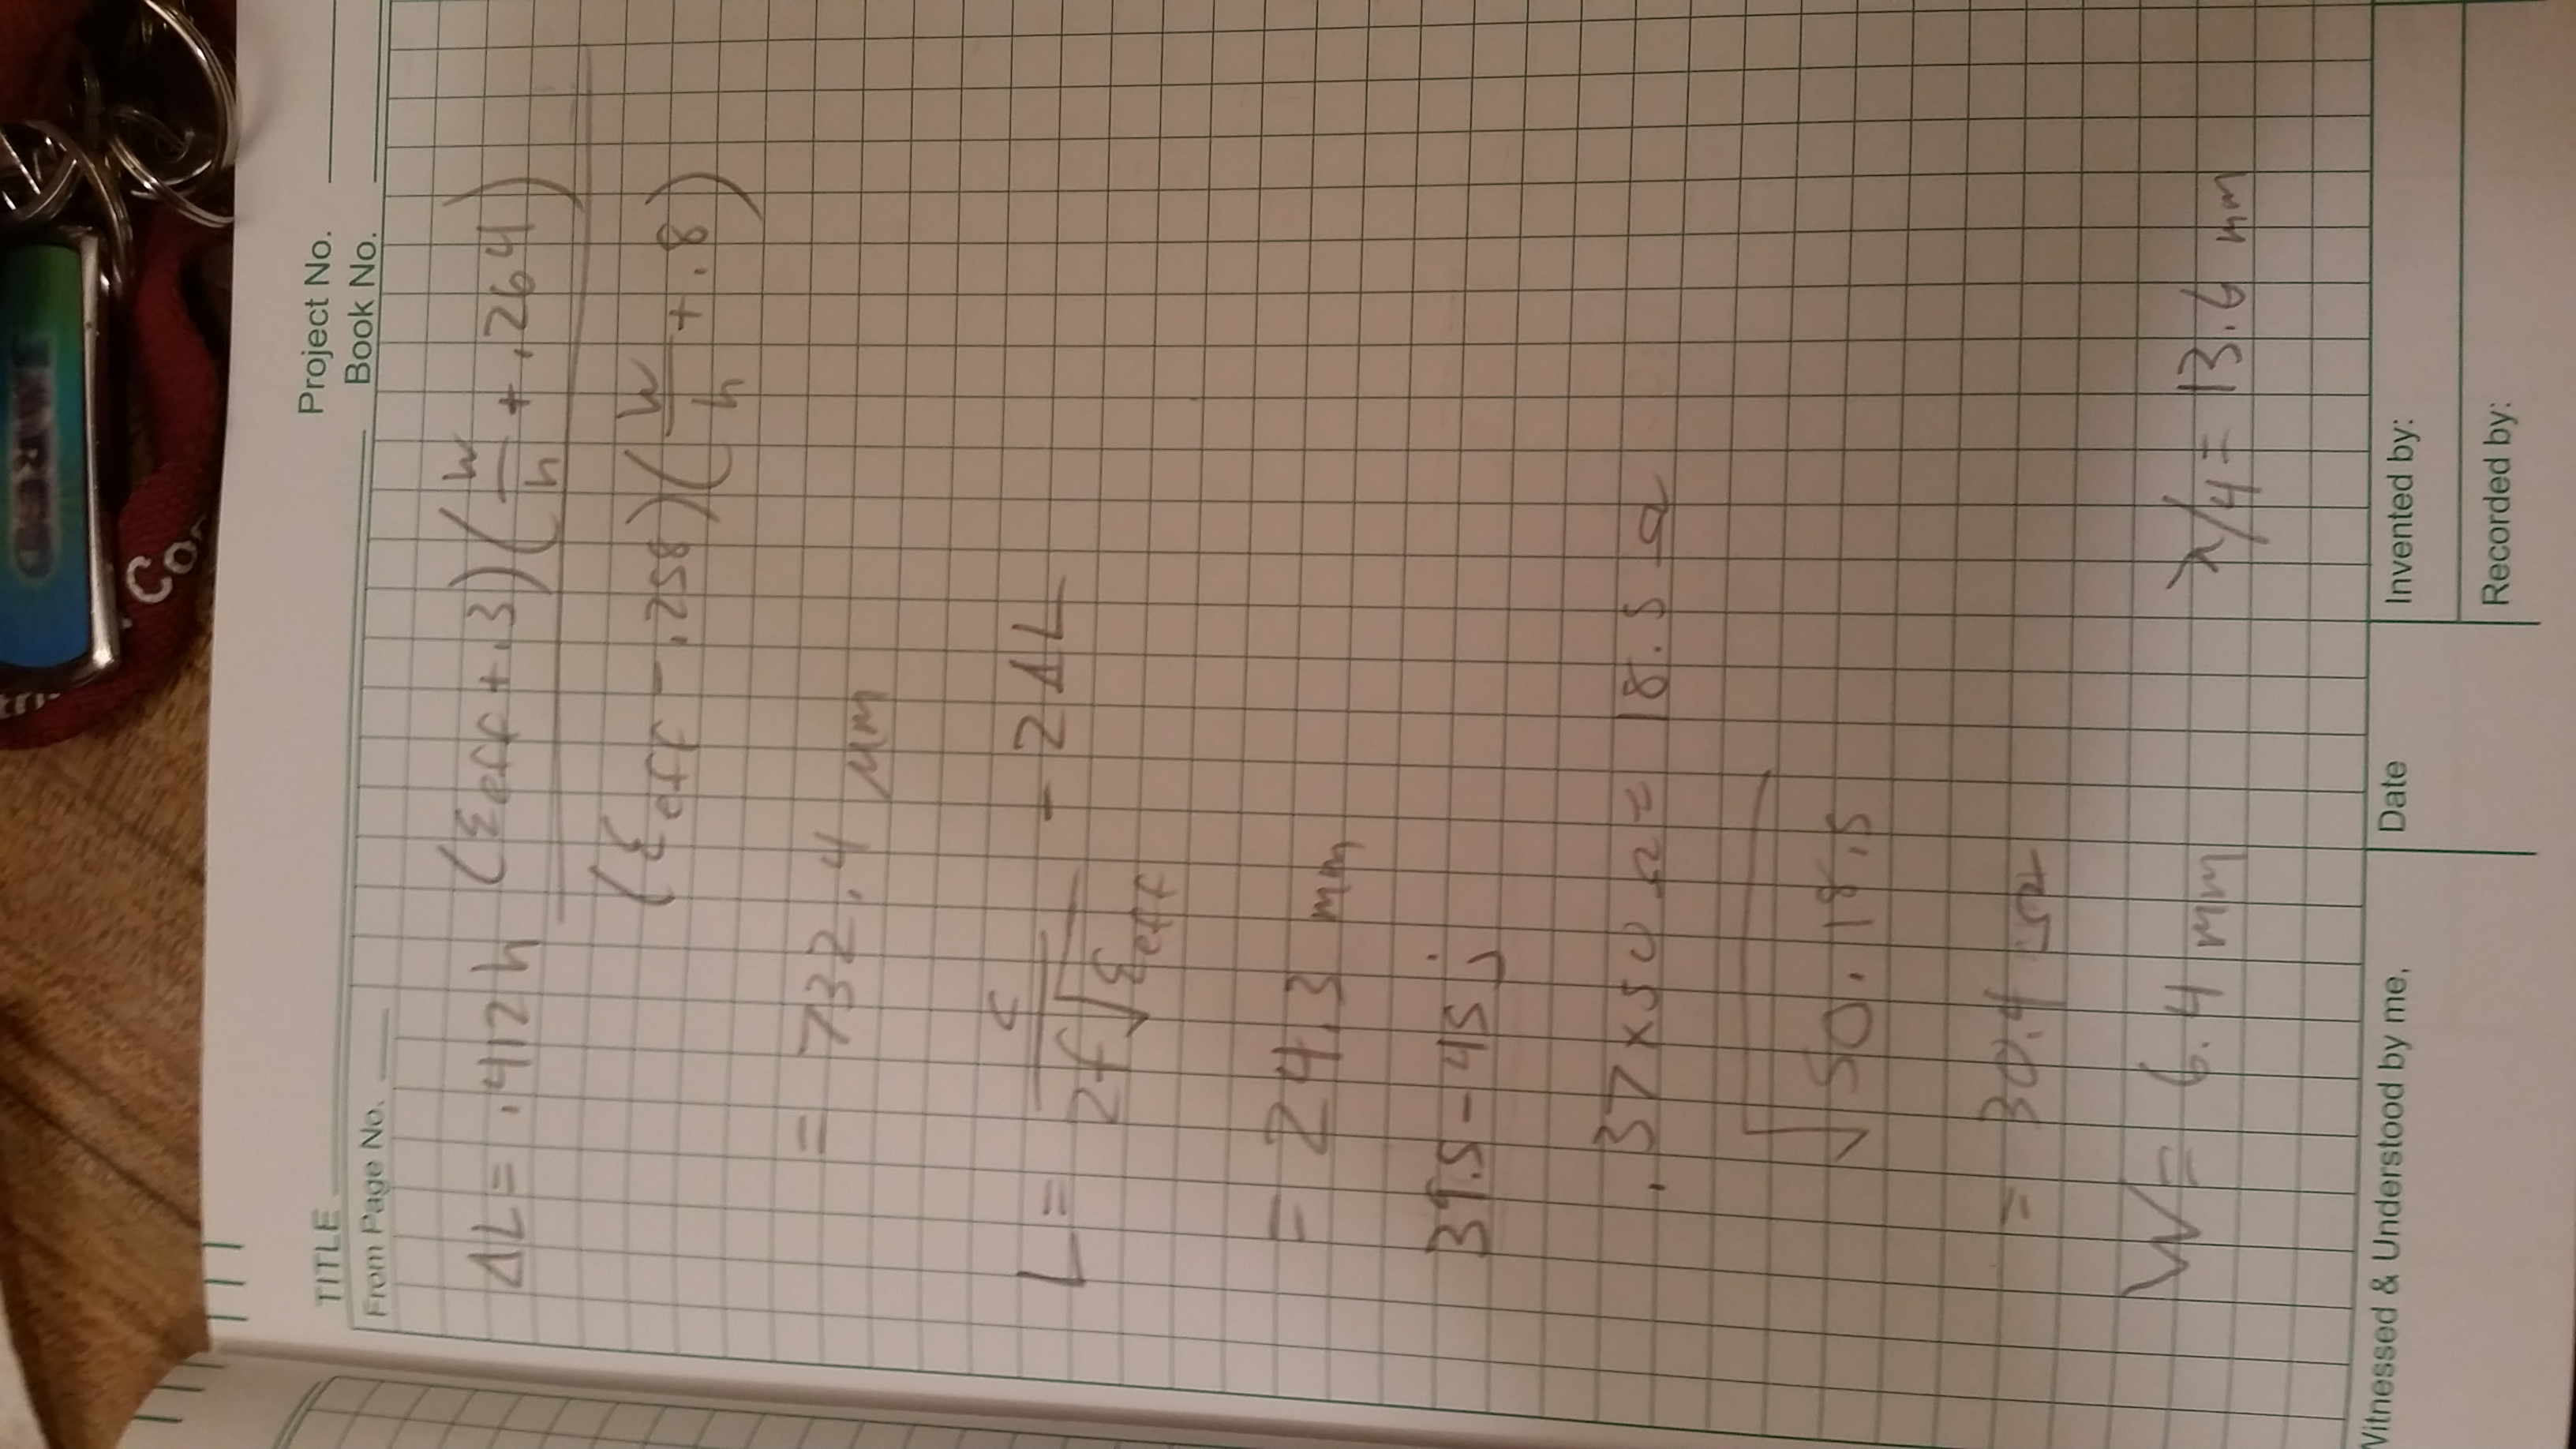 JARED
Co
TITLE
Project No.
Book No.
From Page No.
ΔL = .412 h (εeff + .3)(W/h + .264)
(εeff - .258)(W/h + .8)
= 732.4 μm
L = c / 2f√εeff - 2ΔL
= 24.3 mm
39.5 - 45 j
.37 x 50 Ω = 18.5 Ω
√50 · 18.5
= 30.4 Ω
W = 6.4 mm λ/4 = 13.6 mm
Witnessed & Understood by me,
Date
Invented by:
Recorded by: